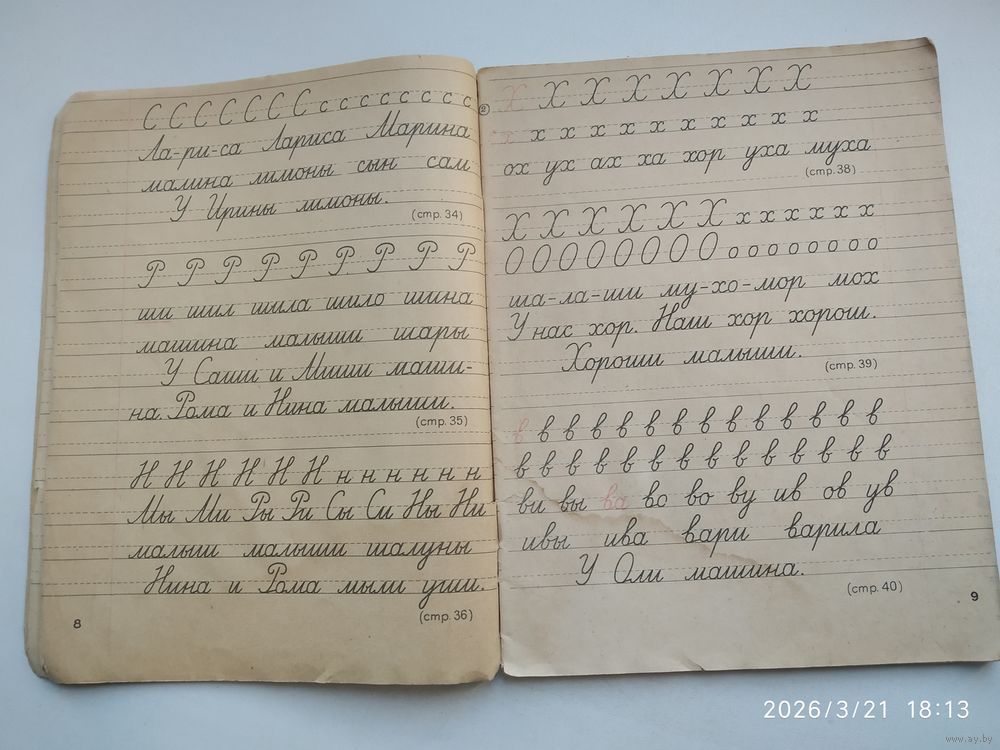 С С С С С С С с с с с с с с с
Ла-ри-са Лариса Марина
малина лимоны сын сам
У Ирины лимоны.
(стр. 34)
Р Р Р Р Р Р Р Р Р
ши шил шила шило шина
машина малыши шары
У Саши и Миши маши-
на. Рома и Нина малыши.
(стр. 35)
Н Н Н Н Н Н н н н н н н
Мы Ми Ры Ри Сы Си Ны Ни
малыш малыши шалуны
Нина и Рома мыли уши.
(стр. 36)
8
2
Х Х Х Х Х Х Х Х
х х х х х х х х х х х
ох ух ах ха хор уха муха
(стр. 38)
Х Х Х Х Х Х х х х х х х
О О О О О О О О о о о о о о о о
ша-ла-ши му-хо-мор мох
У нас хор. Наш хор хорош.
Хороши малыши.
(стр. 39)
в в в в в в в в в в в в в в
в в в в в в в в в в в в в в
ви вы ва во во ву ив ов ув
ивы ива вари варила
У Оли машина.
(стр. 40)
9
2026/3/21 18:13
www.ay.by